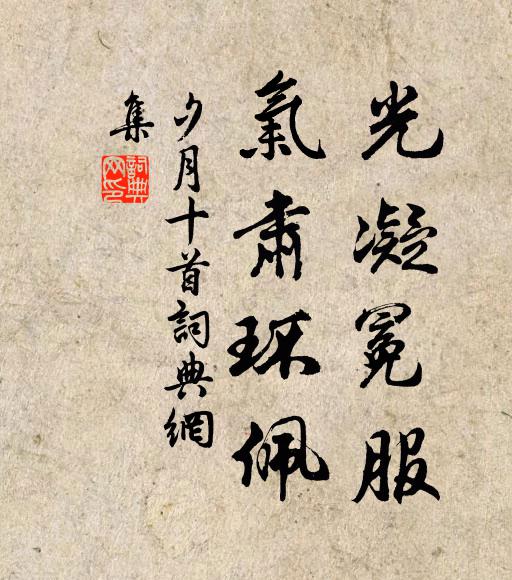 光凝冕服
氣肅環佩
夕月十首詞典網
集
詞典網印